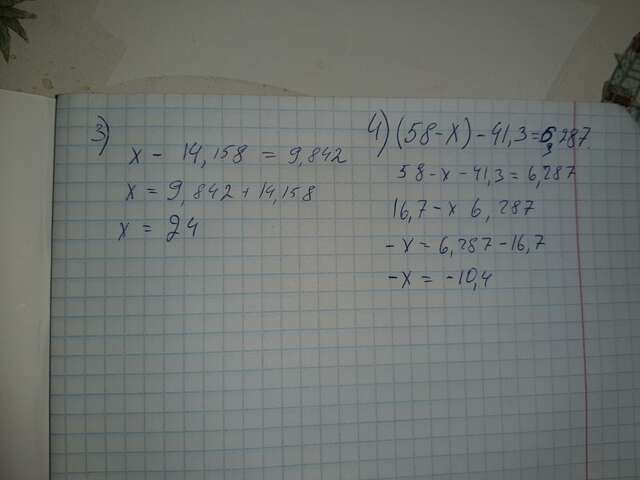 3)
x - 14,158 = 9,842
x = 9,842 + 14,158
x = 24
4) (58-x) - 41,3 = 6,287.
58 - x - 41,3 = 6,287
16,7 - x 6,287
- x = 6,287 - 16,7
- x = -10,4